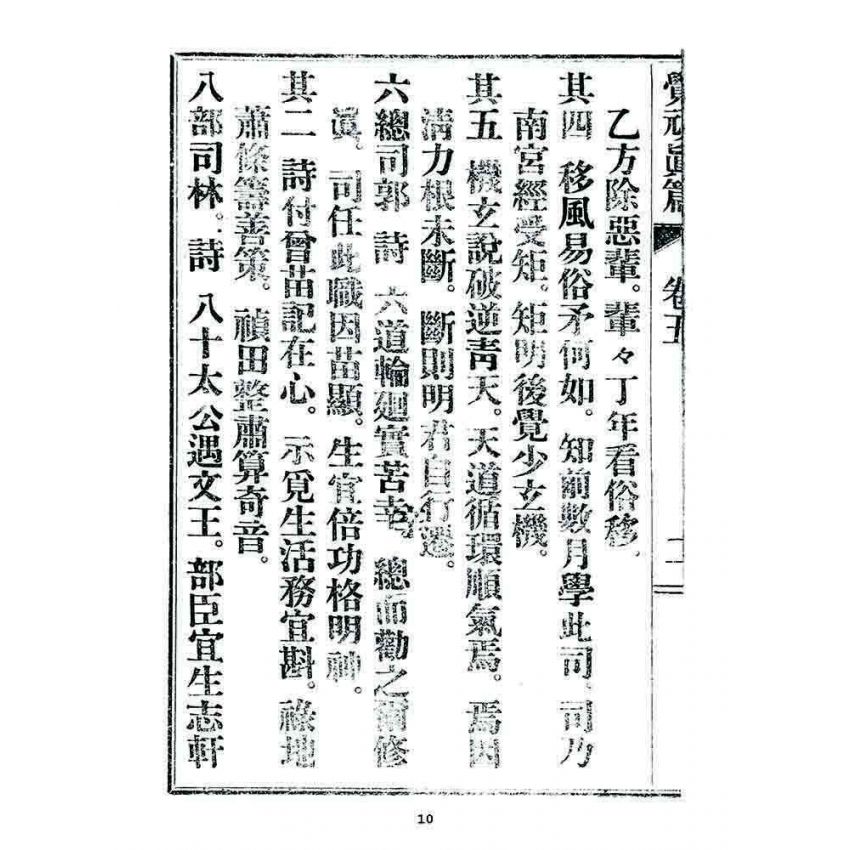 覺頑眞篇 卷五
乙方除惡輩。輩々丁年看俗移。
其四 移風易俗矛何如。知前數月學此司。司乃
南宮經受矩。矩明後覺少玄機。
其五 機玄說破逆靑天。天道循環順氣焉。焉因
清力根未斷。斷則明君自行遷。
六總司郭 詩 六道輪廻實苦幸。總而勸之爾修
眞。司任此職因苗顯。生宜倍功格明神。
其二 詩付曾苗記在心。示覓生活務宜斟。祿地
蕭條籌善策。禎田整肅算奇音。
八部司林。詩 八十太公遇文王。部臣宜生志軒
10